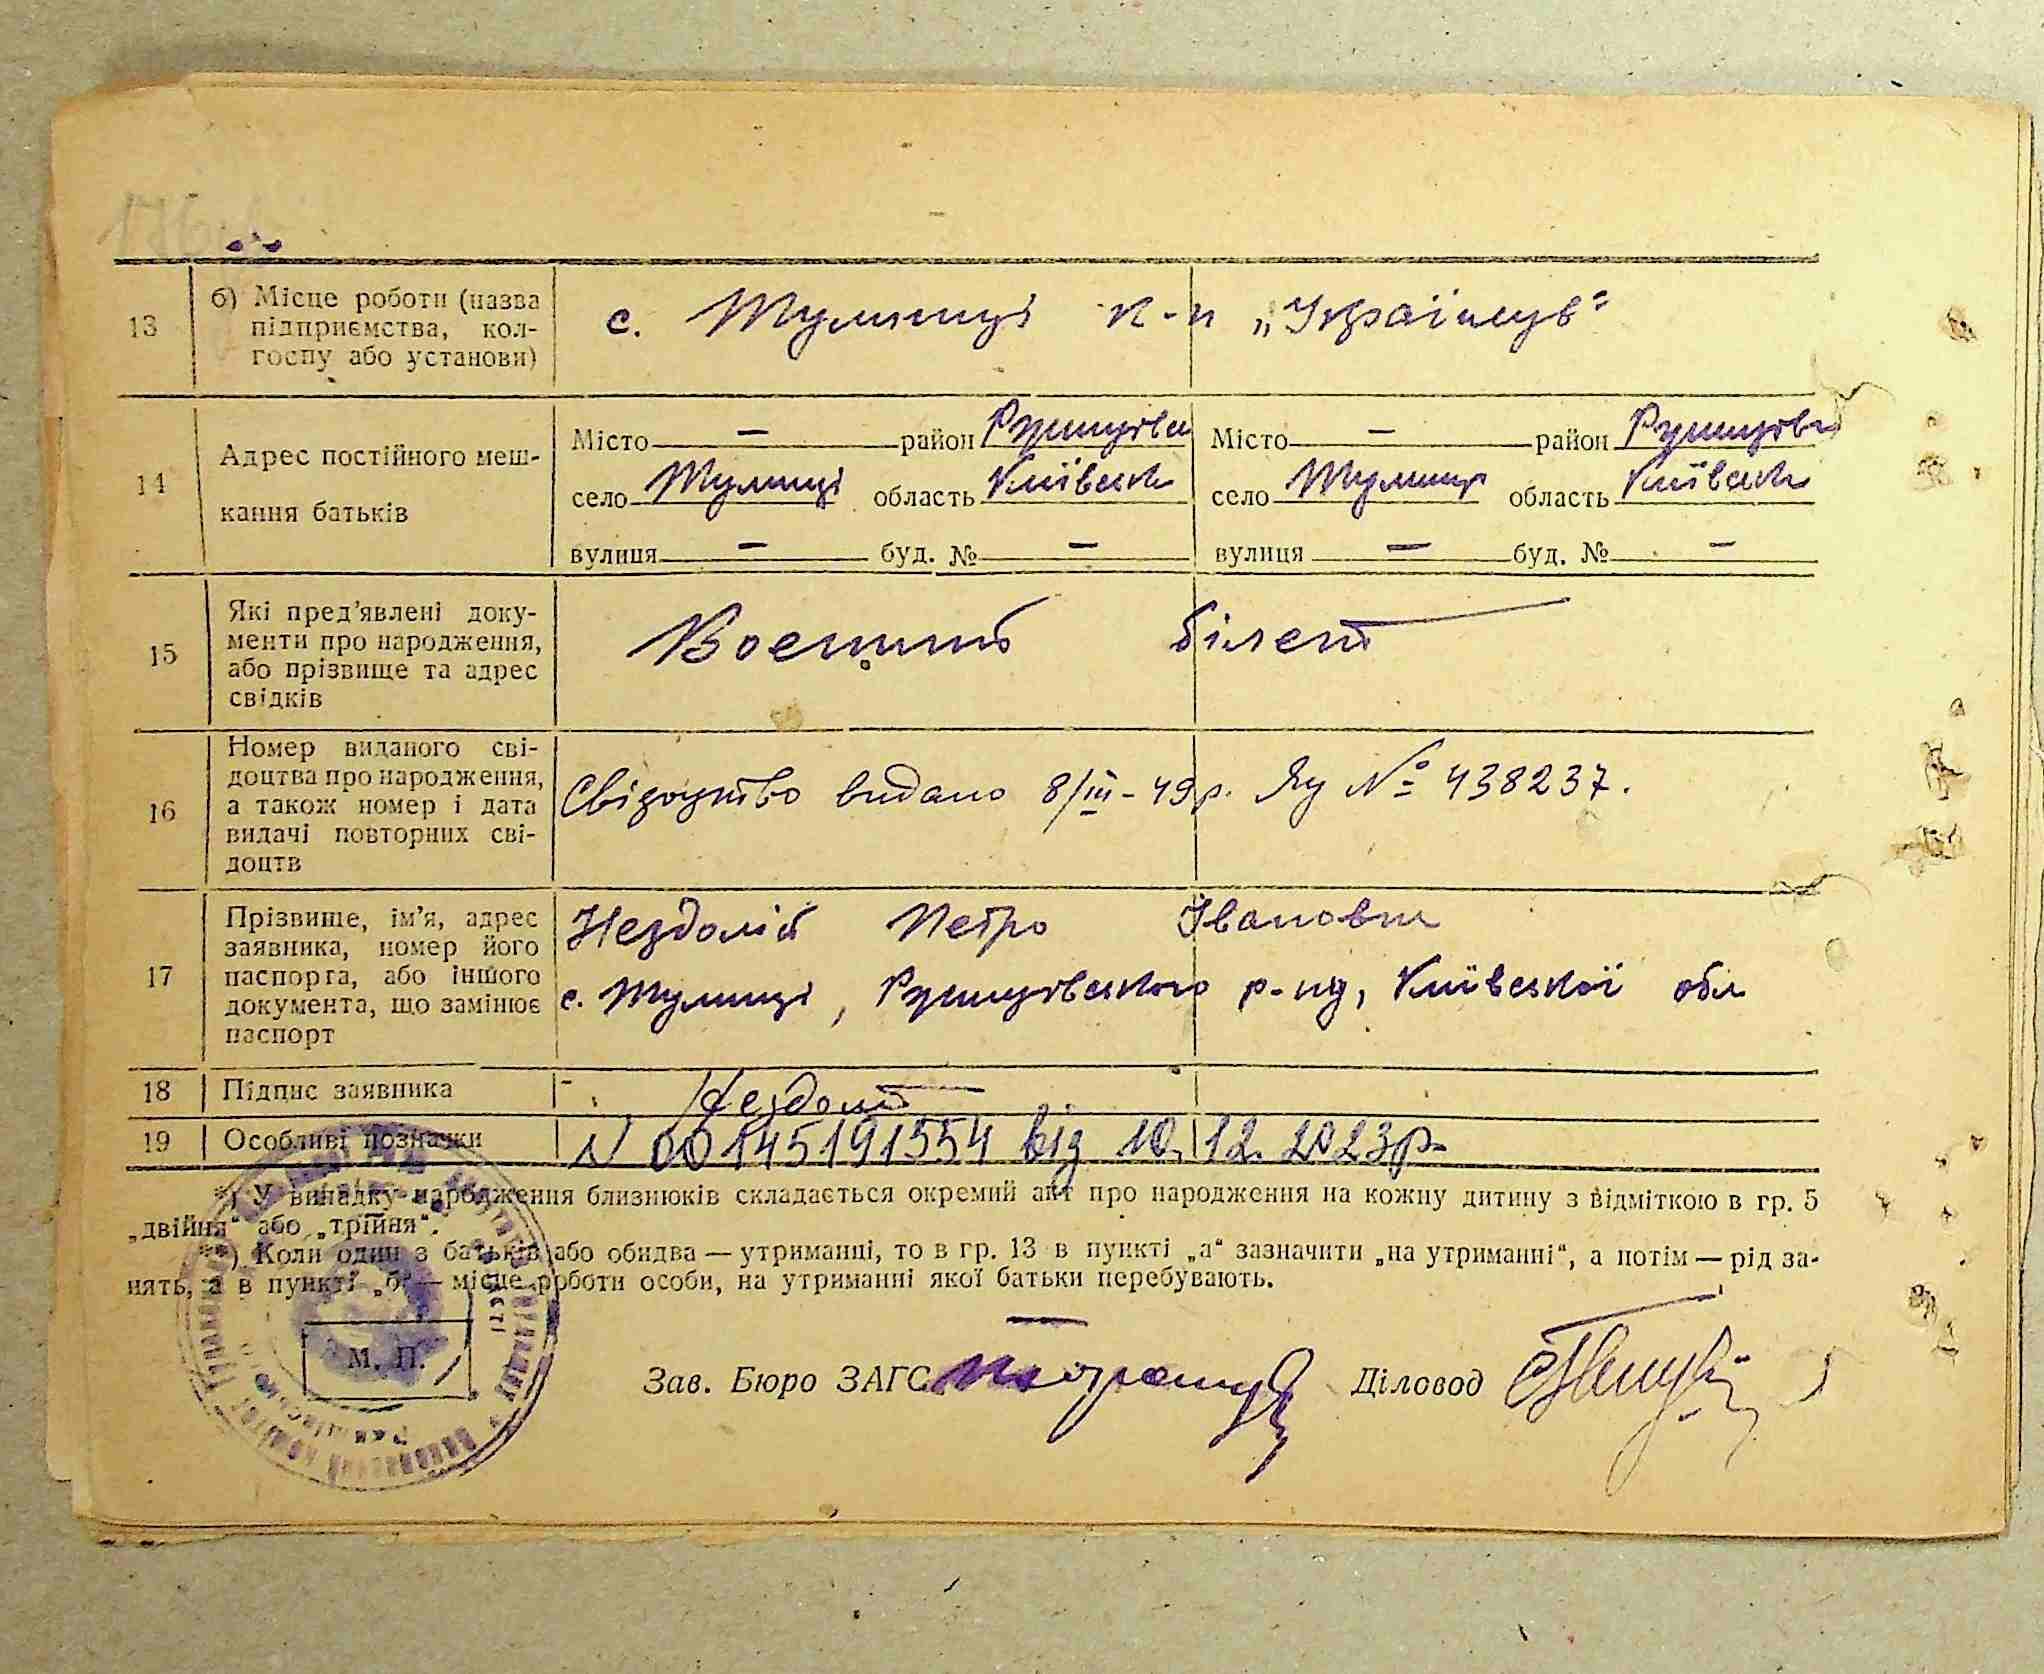 13 б) Місце роботи (назва
підприємства, кол-
госпу або установи)
с. Тулинці к-п „Українець"
14 Адрес постійного меш-
кання батьків
Місто — район Ржищівськ Місто — район Ржищівськ
село Тулинці область Київськ село Тулинці область Київськ
вулиця — буд. № — вулиця — буд. № —
15 Які пред'явлені доку-
менти про народження,
або прізвище та адрес
свідків
Воєнний білет
16 Номер виданого сві-
доцтва про народження,
а також номер і дата
видачі повторних сві-
доцтв
Свідоцтво видано 8/III-49р. Яу № 438237.
17 Прізвище, ім'я, адрес
заявника, номер його
паспорта, або іншого
документа, що замінює
паспорт
Нездолій Петро Іванович
с. Тулинці, Ржищівського р-ну, Київської обл
18 Підпис заявника
Нездолій
19 Особливі позначки N 00145191554 від 10.12.2023р.
*) У випадку народження близнюків складається окремий акт про народження на кожну дитину з відміткою в гр. 5
„двійня" або „трійня".
**) Коли один з батьків або обидва — утриманці, то в гр. 13 в пункті „а" зазначити „на утриманні", а потім — рід за-
нять, а в пункті „б" — місце роботи особи, на утриманні якої батьки перебувають.
М. П.
Зав. Бюро ЗАГС Діловод